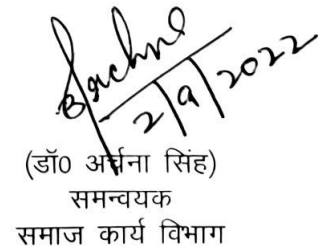 Archna
2/9/2022
(डॉ0 अर्चना सिंह)
समन्वयक
समाज कार्य विभाग